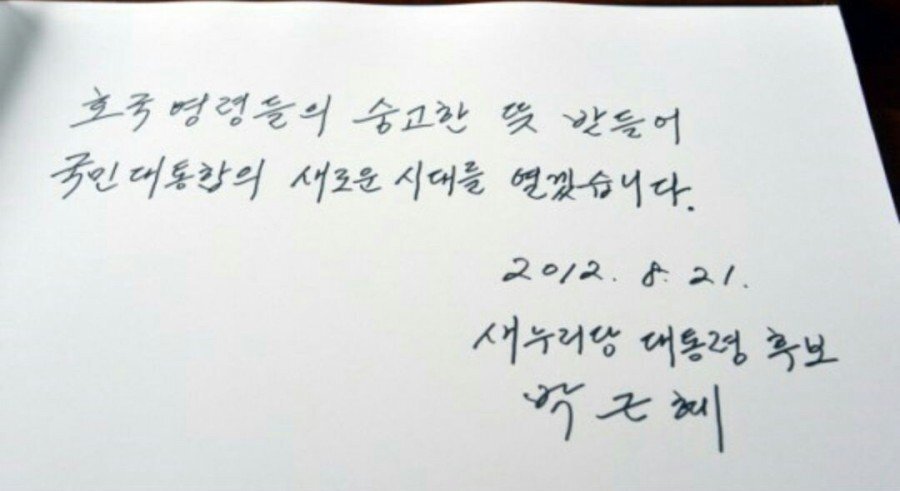 호국영령들의 숭고한 뜻 받들어
국민대통합의 새로운 시대를 열겠습니다.
2012. 8. 21.
새누리당 대통령 후보
박 근 혜